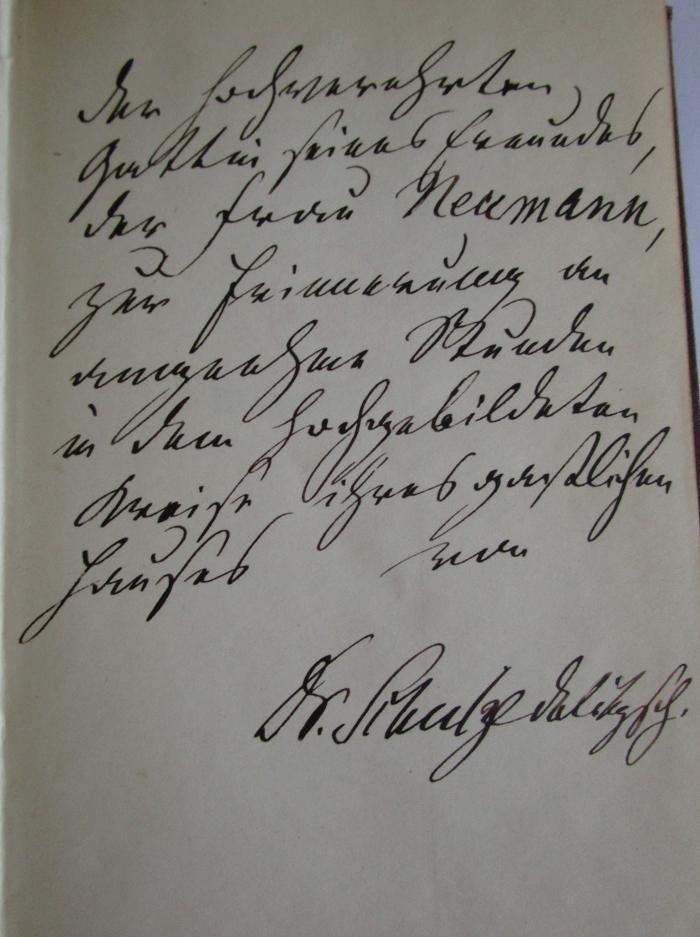 der hochverehrten
Gattin seines Freundes,
der Frau Neumann,
zur Erinnerung an
angenehme Stunden
in dem hochgebildeten
Kreise ihres gastlichen
Hauses von
Dr. Schulze Delitzsch.